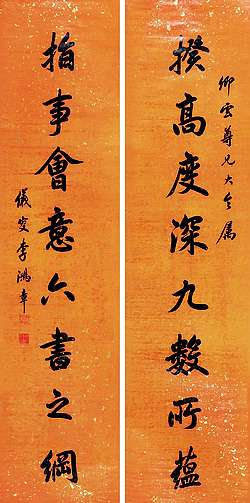 卿雲尊兄大人屬
揆高度深九數所蘊
指事會意六書之綱
儀叟李鴻章